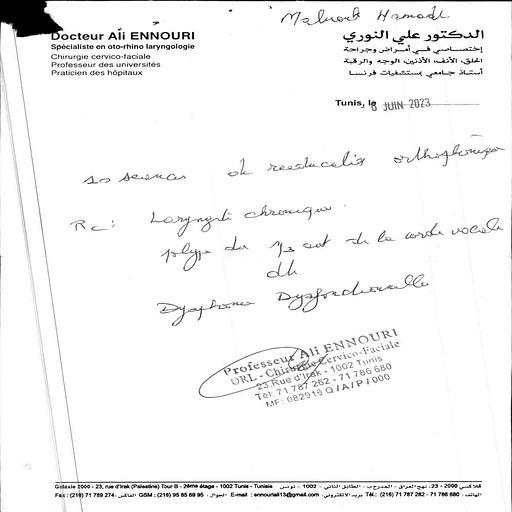 Docteur Ali ENNOURI
Spécialiste en oto-rhino laryngologie
Chirurgie cervico-faciale
Professeur des universités
Praticien des hôpitaux
الدكتور علي النوري
إختصاصي في أمراض وجراحة
الحلق، الأنف، الأذنين، الوجه والرقبة
أستاذ جامعي بمستشفيات فرنسا
Tunis, le 6 JUIN 2023
10 seances de reeducation orthophonique
Rc: Laryngite chronique.
polype du 1/3 ant de la corde vocale
dte
Dysphonie Dysfonctionnelle
Professeur Ali ENNOURI
ORL - Chirurgie Cervico-Faciale
23 Rue d'Irak - 1002 Tunis
Tél: 71 787 262 - 71 786 680
MF: 082916 Q/A/P/000
Galaxie 2000 - 23, rue d'Irak (Palestine) Tour B - 2ème étage - 1002 Tunis - Tunisie قلاكسي 2000 - 23، نهج العراق - المدرج ب - الطابق الثاني - 1002 - تونس
Fax : (216) 71 789 274 الفاكس - GSM : (216) 95 85 69 95 الجوال - E-mail : ennouriali13@gmail.com بريد الالكتروني - Tél.: (216) 71 787 262 - 71 786 680 الهاتف